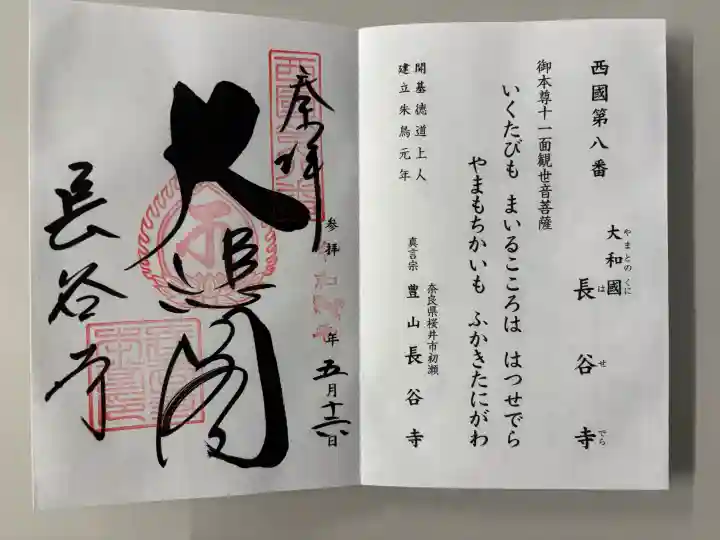 西國第八番
大和國
やまとのくに
長谷寺
はせでら
御本尊十一面観世音菩薩
いくたびも まいるこころは はつせでら
やまもちかいも ふかきたにがわ
開基徳道上人
建立朱鳥元年
奈良県桜井市初瀬
真言宗 豊山長谷寺
奉拝
参拝
年五月十六日
大悲閣
長谷寺